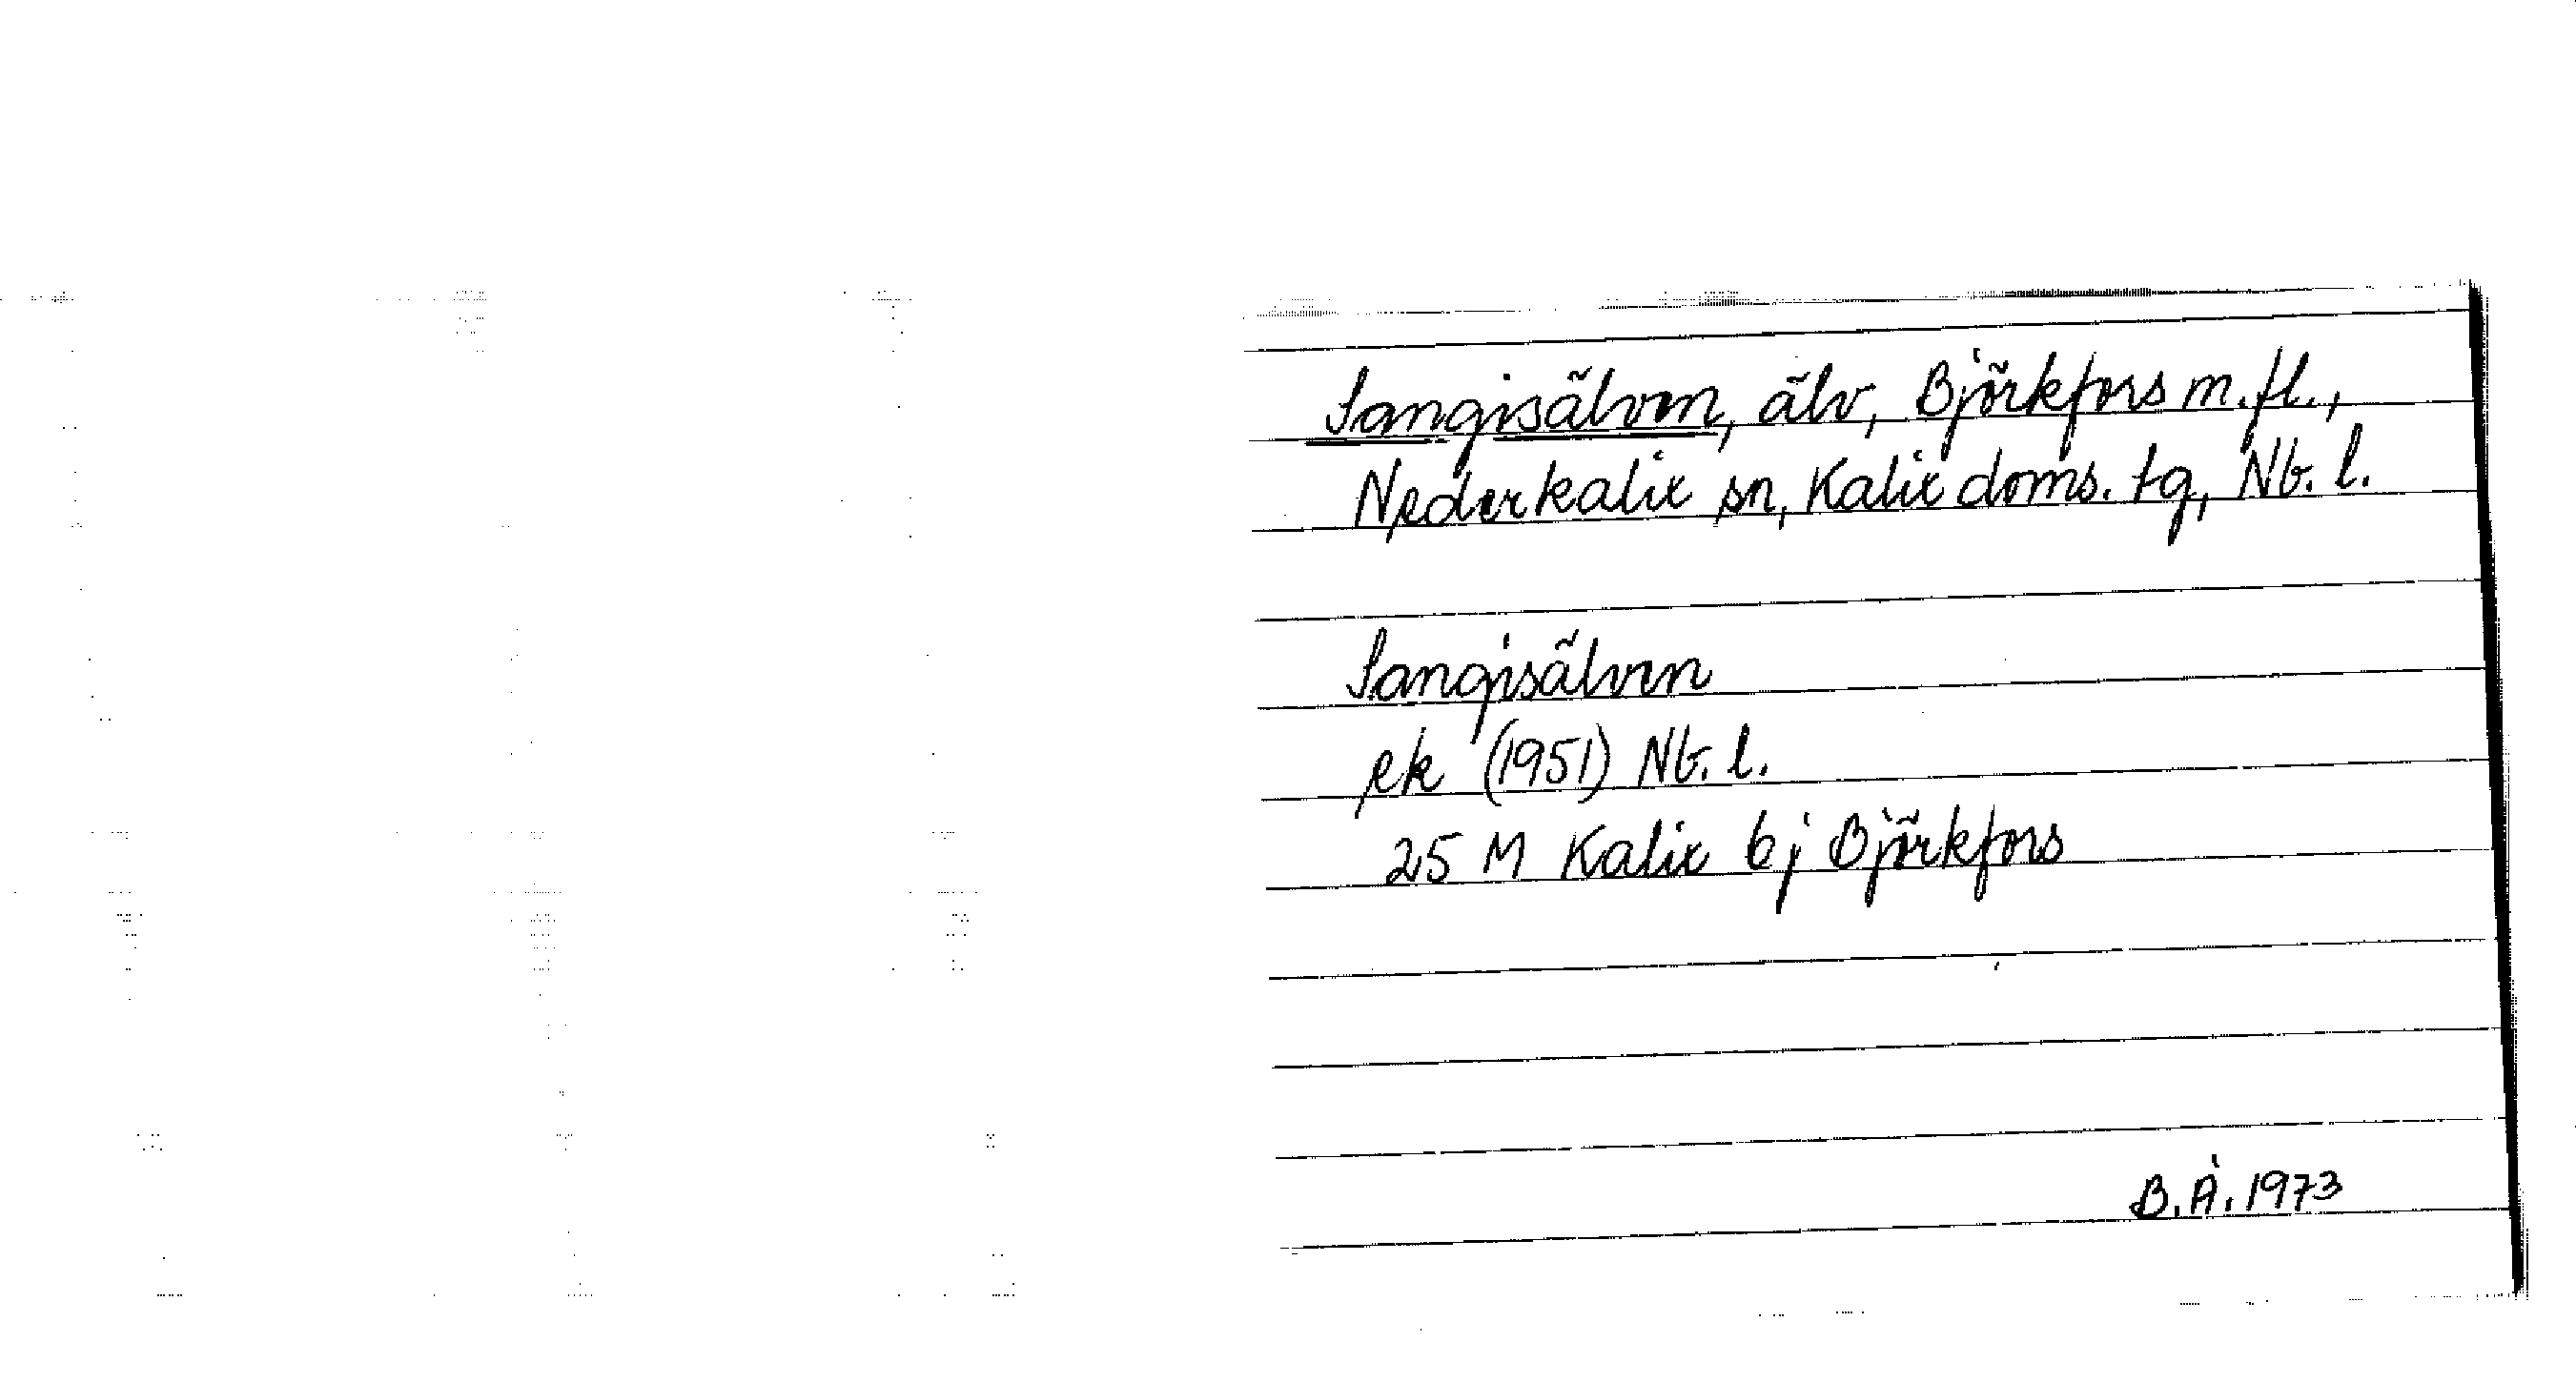 Sangisälven, älv, Björkfors m.fl.,
Nederkalix sn, Kalix doms. tg, Nb. l.
Sangisälven
ek (1951) Nb. l.
25 M Kalix bj Björkfors
B.Å. 1973